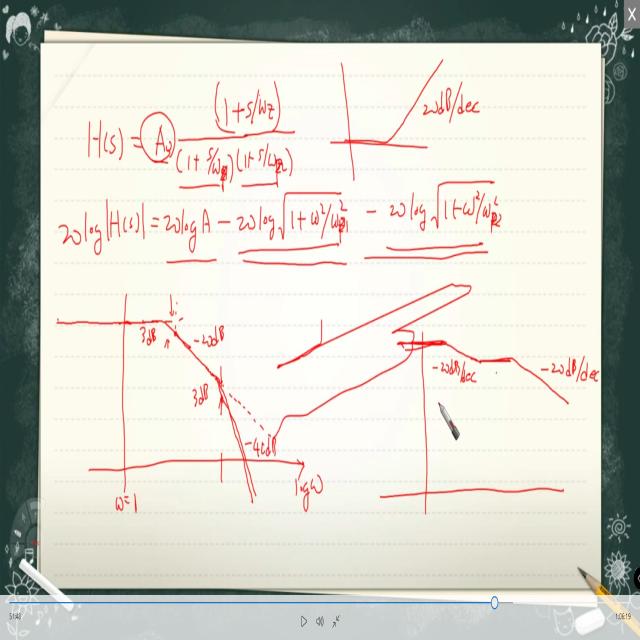 H(s) = A₀ (1+s/wz) / (1+s/wp1)(1+s/wp2)
20dB/dec
20log|H(s)| = 20logA - 20log√1+ω²/ωp1² - 20log√1+ω²/ωp2²
3dB
-20dB
3dB
-40dB
ω=1
logω
-20dB/dec
-20dB/dec
51:48
1:06:19